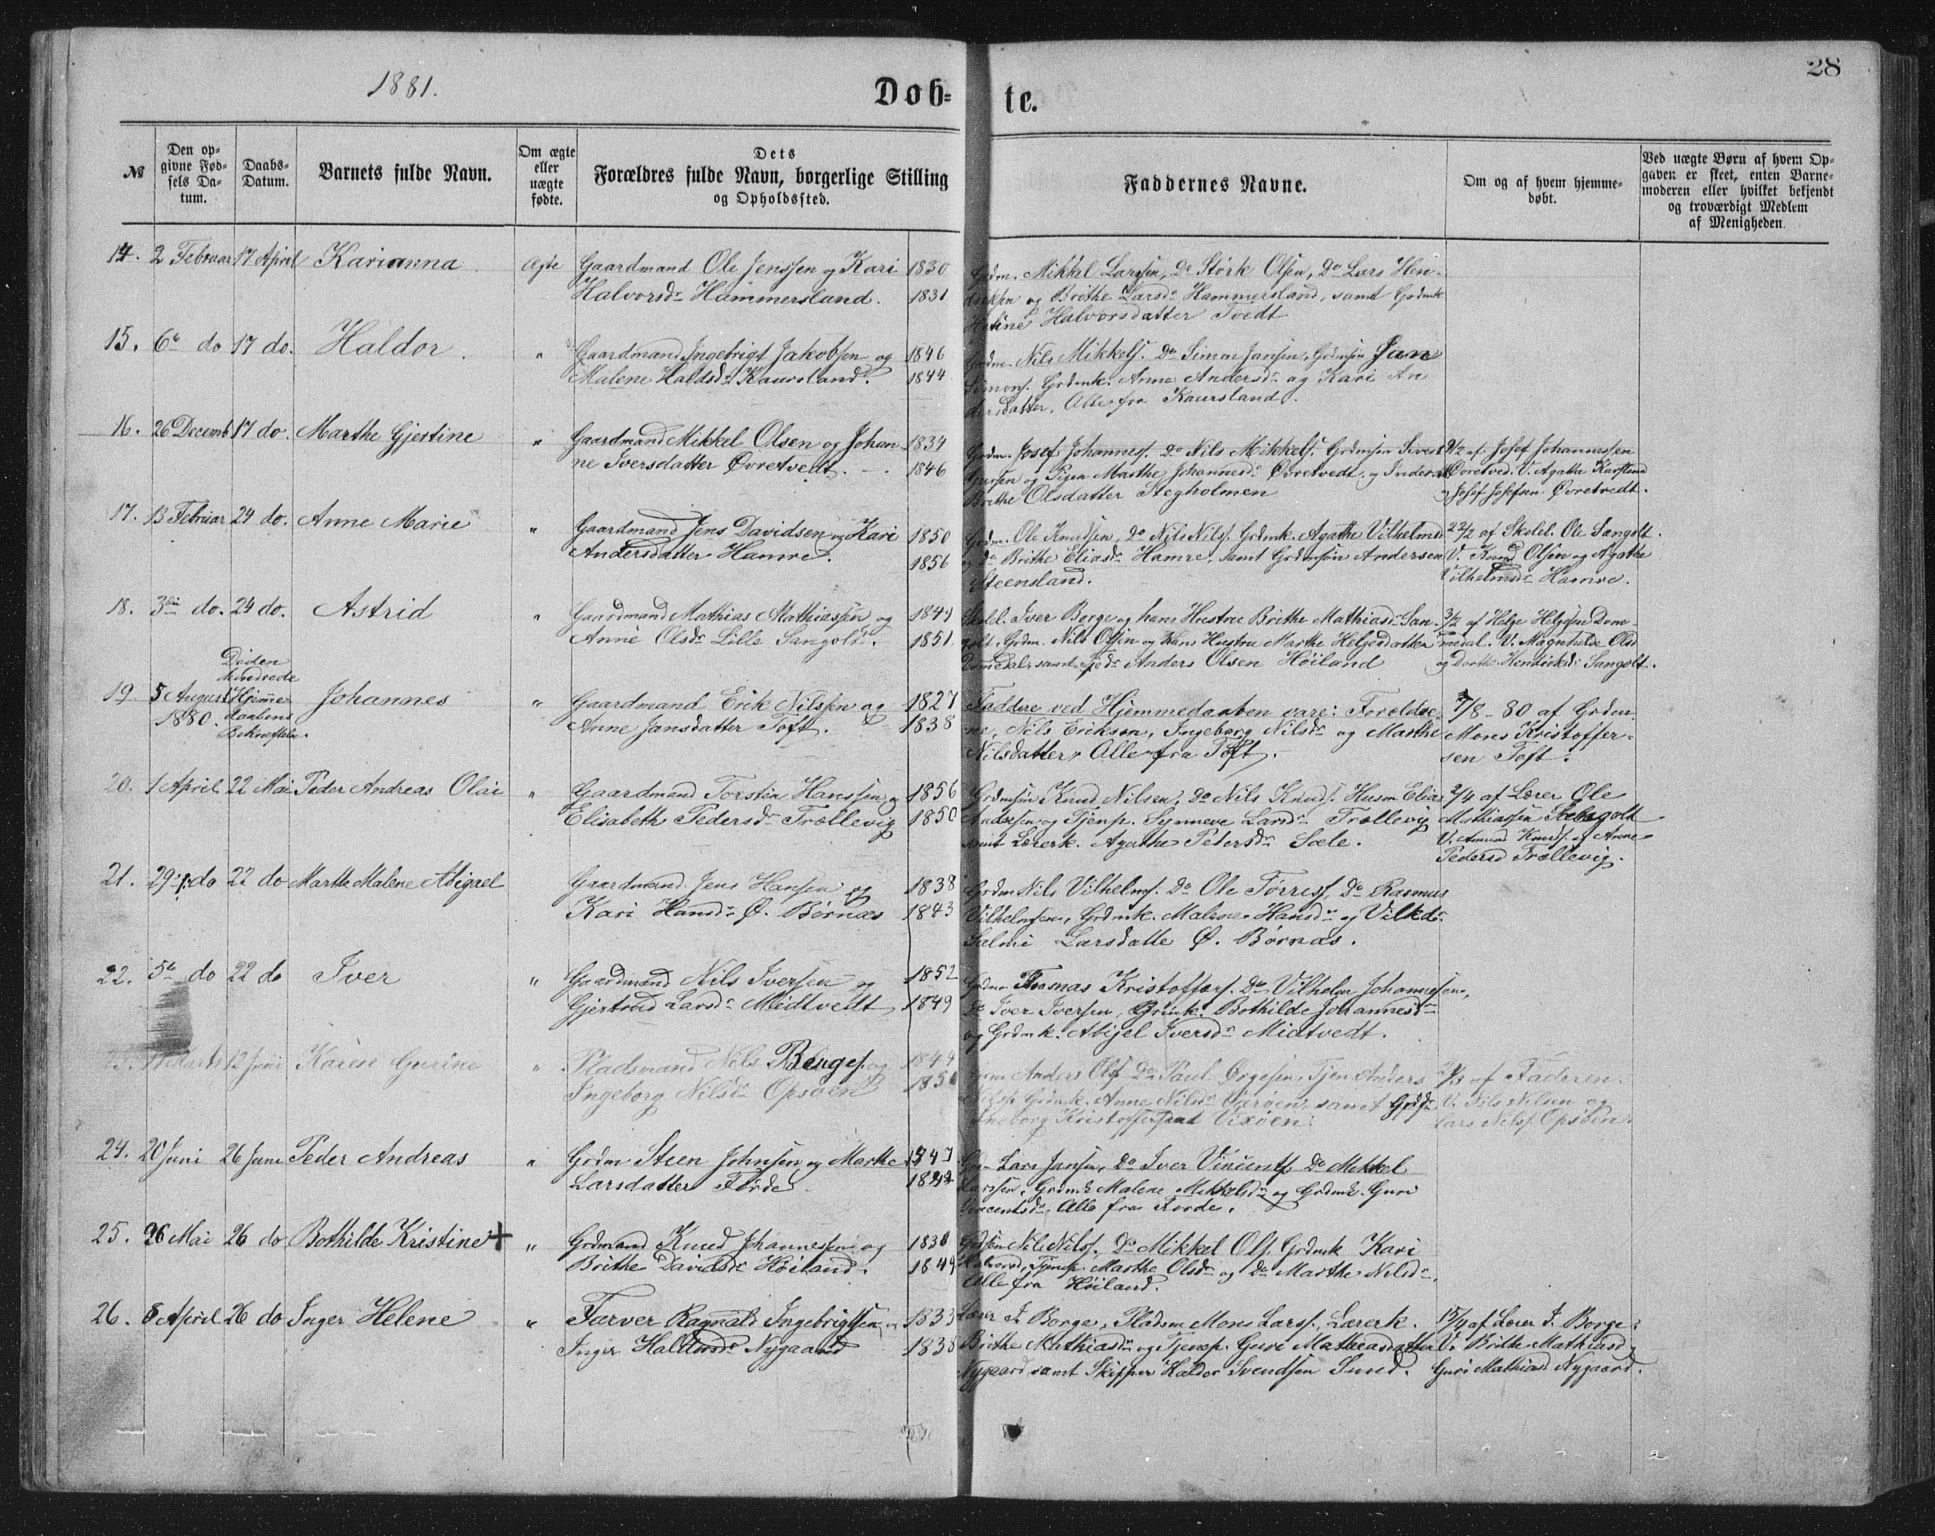 28
1881.
Døb= te.
№
Den op-
givne Fød-
sels Da-
tum.
Daabs-
Datum.
Barnets fulde Navn.
Om ægte
eller
uægte
fødte.
Dets
Forældres fulde Navn, borgerlige Stilling
og Opholdssted.
Faddernes Navne.
Om og af hvem hjemme-
døbt.
Ved uægte Børn af hvem Op-
gaven er skeet, enten Barne-
moderen eller hvilket bekjendt
og troværdigt Medlem
af Menigheden.
14. 2 Februar 17 April Karianna Ægte Gaardmand Ole Jenssen og Kari 1830
Halvorsdr Hammersland. 1831
Grdm. Mikkel Larssen, Do Størk Olsen, Do Lars Hen-
driksen og Brithe Larsdr Hammersland, samt Grdmk
Halvorsdatter Tvedt
15. 6te do 17 do. Haldor. " Gaardmand Ingebrigt Jakobsen og 1846
Malene Haldsdr Kaursland. 1844
Grdm. Nils Mikkels. Do Simon Jansen, Grdmsøn Jan
Simons. Grdmk. Anne Andersdr og Kari An
dersdatter, Alle fra Kaursland.
16. 26 Decemb. 17 do. Marthe Gjertine " Gaardmand Mikkel Olsen og Johan 1834
ne Iversdatter Øvretvedt. 1846
Grdm. Josef Johannes. Do Nils Mikkels. Grdmsøn Sivert
og Pigen Marthe Johannesdr Øvretvedt og
Brithe Olsdatter Stegholmen
9/2 af Josef Johannessen
Øvretved. V. Agathe Karstens
og Josef Josefsen Øvretvedt.
17. 13 Februar 24 do. Anne Marie " Gaardmand Jens Davidsen og Kari 1850
Andersdatter Hamre. 1856
Grdm. Ole Knudsen, Do Nils Nils. Grdmk. Agathe Vilhelmsd
og Do Brithe Eliasdr Hamre, samt Grdmsøn Andersen
Steensland.
22/2 af Skolel. Ole Sangolt.
V. Knud Olsen og Agathe
Vilhelmsdr Hamre.
18. 3die do. 24 do. Astrid " Gaardmand Mathias Mathiassen og 1849
Anne Olsdr Lille Sangolt. 1851
Skolel. Iver Borge og hans Hustru Brithe Mathiasdr San-
golt, Grdm. Nils Olsen og Hans Hustru Marthe Helgesdatter
Domedal, samt Anders Olsen Høiland
3/2 af Helge Helgesen Dom-
medal. V. Magnhilde Olsd
og Dorthe Hendriksdr Sangolt.
19 5 August
1880.
Døden
hindrede
Hjemme-
daabens
Bekræftelse.
Johannes " Gaardmand Erik Nilssen og 1827
Anne Jansdatter Toft. 1838
Faddere ved Hjemmedaaben vare: Forældre-
ne, Nils Eriksen, Ingeborg Nilsdr og Marthe
Nilsdatter, Alle fra Toft.
7/8 - 80 af Grdm.
Mons Kristoffer-
sen Toft.
20. 1 April 22 Mai Peder Andreas Olai " Gaardmand Torstin Hanssen og 1856
Elisabeth Pedersdr Trællevig 1850
Grdmsøn Knud Nilsen, Do Nils Knuds. Husm Elias
Andersen og Tjenp. Synneve Larsdr Trællevig
samt Lærerk. Agathe Pedersdr Sæle.
2/4 af Lærer Ole
Mathiassen Sangolt
V. Knuds. og Anne
Pedersd Trællevig.
21. 29 do 22 do Marthe Malene Abigael Gaardmand Jens Hansen og 1838
Kari Hansdr Ø. Børnæs 1843
Grdm Nils Vilhelms. Do Ole Tørris, Do Rasmus
Vilhelmsen, Grdmk. Malene Hansdr og
Larsdatte Ø. Børnæs.
22. 5te do 22 do Iver " Gaardmand Nils Iversen og 1852
Gjertrud Larsdr Midtvedt 1849
Grdm Rasmus Kristoffers. Do Vilhelm Johannessen,
Do Iver Iversen, Grdmk. Bothilde Johannesdr
og Grdmk. Abigel Iversdr Midtvedt.
12 Juni Karen Gurine " Pladsmand Nils Børges. og 1844
Ingeborg Nilsdr Opsøen
Anders Ols Do Paul Ørgesen, Tjen Anders
Grdmk. Anne Nilsdr samt
Ingborg Kristoffersdat Vixøen.
af Faderen.
V. Nils Nilsen og
Lars Nils. Opsøen.
24. 20 Juni 26 Juni Peder Andreas " Grdm Steen Johnsen og Marthe 1847
Larsdatter Førde
Grdm Lars Jansen, Do Iver Vincents Do Mikkel
Larsen, Grdmk Malene Mikkelsdr og Grdmk. Guri
Vincentsdr, Alle fra Førde.
25. 26 Mai 26 do Bothilde Kristine + " Grdmand Knud Johannessen og
Brithe Davidsdr Høiland. 1849
Grdsøn Nils Nils. Do Mikkel Ols. Grdmk Kari
Halvorsd, Tjenp. Marthe Olsdr og Do Marthe Nilsdr,
Alle fra Høiland.
26. 8 April 26 do Inger Helene " Farver Ragnald Ingebrigtsen og 1833
Inger Nygaard 1838
Lærer I. Borge, Pladsm Mons Lars., Lærerk.
Brithe Mathiasdr og Tjenp. Guri Mathiasdatter
Nygaard samt Skipper Haldor Svendsen Sund.
15/4 af Lærer I. Borge.
V. Brithe Mathiasd og
Guri Mathiasd Nygaard.